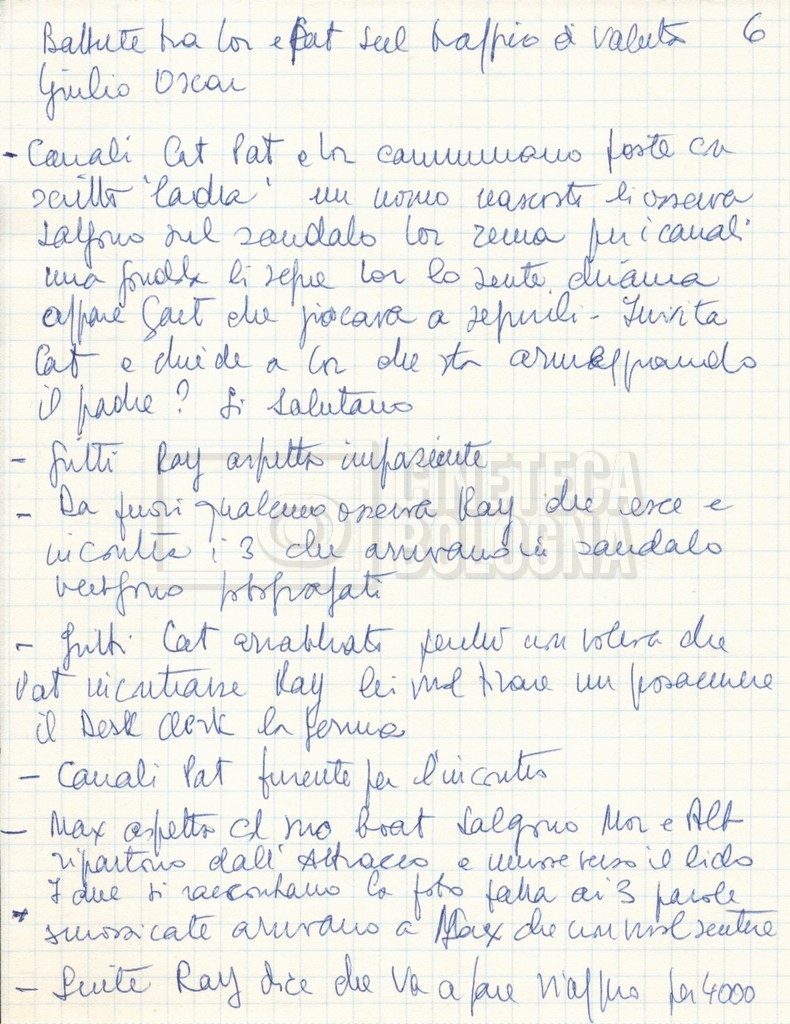 Battute tra Lor e Pat sul traffico di valuta 6
Giulio Oscar
- Canali Cat Pat e Lor camminano poste con
scritto 'ladra' un uomo nascosto li osserva
salgono sul sandalo Lor rema per i canali
una gondola li segue Lor lo sente, chiama
appare Gaet che giocava a seguirli - Invita
Cat e chiede a Lor che sta armeggiando
il padre? Si salutano
- Gritti Ray aspetta impaziente
- Da fuori qualcuno osserva Ray che esce e
incontra i 3 che arrivano in sandalo
vengono fotografati
- Gritti Cat arrabbiata perché non voleva che
Pat incontrasse Ray lei vuol tirare un posacenere
il Desk Clerk la ferma
- Canali Pat furente per l'incontro
- Max aspetta col suo boat Salgono Mor e Alb
ripartono dall'Attracco e verso il lido
I due si raccontano la foto fatta ai 3 parole
* smozzicate arrivano a Max che non vuol sentire
- Suite Ray dice che va a fare viaggio per 4000
CINETECA
BOLOGNA